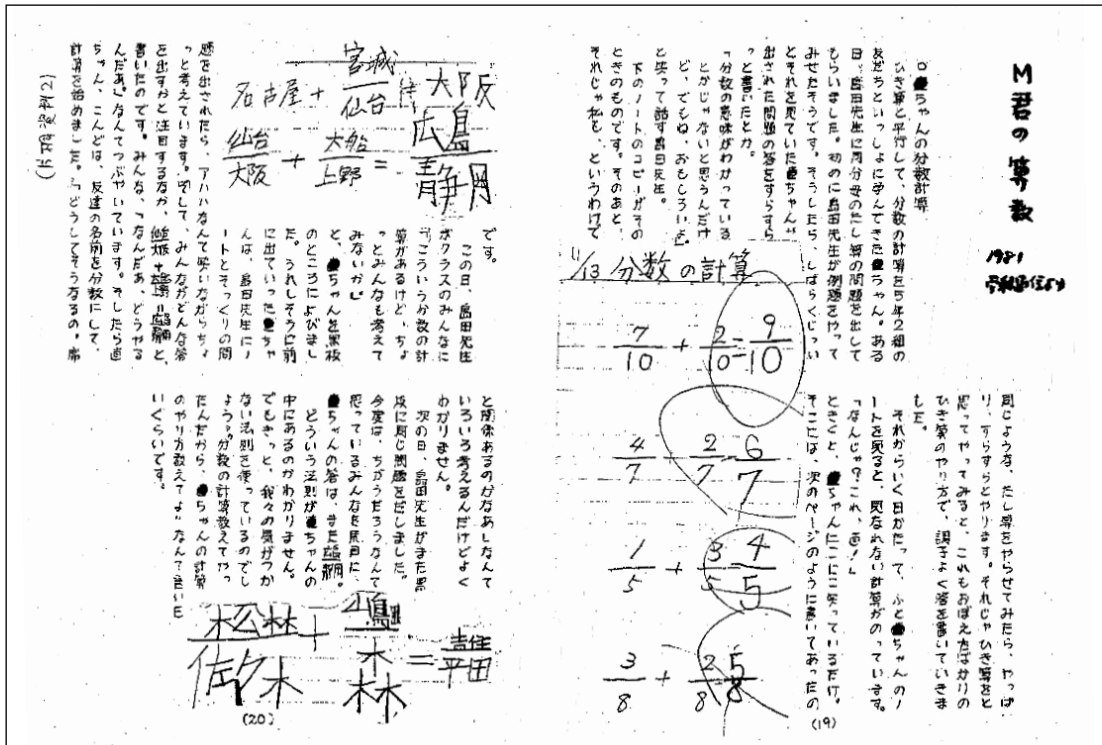 M君の算数
1981
学級通信より
●ちゃんの分数計算
ひき算と平行して、分数の計算を5年2組の
友だちといっしょに学んできた●ちゃん。ある
日、島田先生に同分母のたし算の問題を出して
もらいました。初めに島田先生が例題をやって
みせたそうです。そうしたら、しばらくじっい
とそれを見ていた●ちゃんが
出された問題の答をすらすら
っと書いたとか。
「分数の意味がわかっている
とかじゃないと思うんだけ
ど、でもね、おもしろいよ」
と笑って話す島田先生。
下のノートのコピーがその
ときのものです。そのあと、
それじゃ私も、というわけで
11/13 分数の計算
7/10 + 2/10 = 9/10
4/7 + 2/7 = 6/7
1/5 + 3/5 = 4/5
3/8 + 2/8 = 5/8
同じような、たし算をやらせてみたら、やっぱ
り、すらすらとやります。それじゃひき算をと
思ってやってみると、これもおぼえたばかりの
ひき算のやり方で、調子よく答を書いていきま
した。
それからいく日かたって、ふと●ちゃんのノ
ートを見ると、見なれない計算がのっています。
「なんじゃ?これ、直!」
ときくと、●ちゃんはにこにこ笑っているだけ。
そこには、次のページのように書いてあったの
(19)
名古屋 + 宮城/仙台 は 大阪
仙台/大阪 + 大船/上野 = 広島/静岡
です。
この日、島田先生
がクラスのみんなに
「こういう分数の計
算があるけど、ちょ
っとみんなも考えて
みないか」
と、●ちゃんを黒板
のところによびまし
た。うれしそうに前
に出ていった●ちゃ
んは、島田先生にノ
ートとそっくりの問
題を出されたら、アハハハなんて笑いながらちょ
っと考えています。そして、みんながどんな答
を出すかと注目するなか、仙台/大阪+大船/上野=広島/静岡と、
書いたのです。みんな、「なんだあ、どうやる
んだあ」なんてつぶやいています。そしたら直
ちゃん、こんどは、友達の名前を分数にして、
計算を始めました。「どうしてそうなるの。席
と関係あるのかなあ」なんて
いろいろ考えるんだけどよく
わかりません。
次の日、島田先生がまた黒
板に同じ問題をだしました。
今度は、ちがうだろうなんて
思っているみんなを尻目に、
●ちゃんの答は、また広島/静岡。
どういう法則が●ちゃんの
中にあるのかわかりません。
でもきっと、我々の気がつか
ない法則を使っているのでし
ょう?分数の計算教えてやっ
たんだから、●ちゃんの計算
のやり方教えてよ」なんて言いた
いくらいです。
(20)